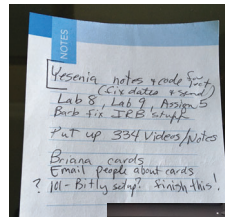 NOTES
Yesenia notes & code for
(fix dates & send)
Lab 8, Lab 9, Assign 5
Barb fix IRB stuff
Put up 334 Videos/Notes
Briana cards
Email people about cards
? 101 - Bitly setup? finish this!